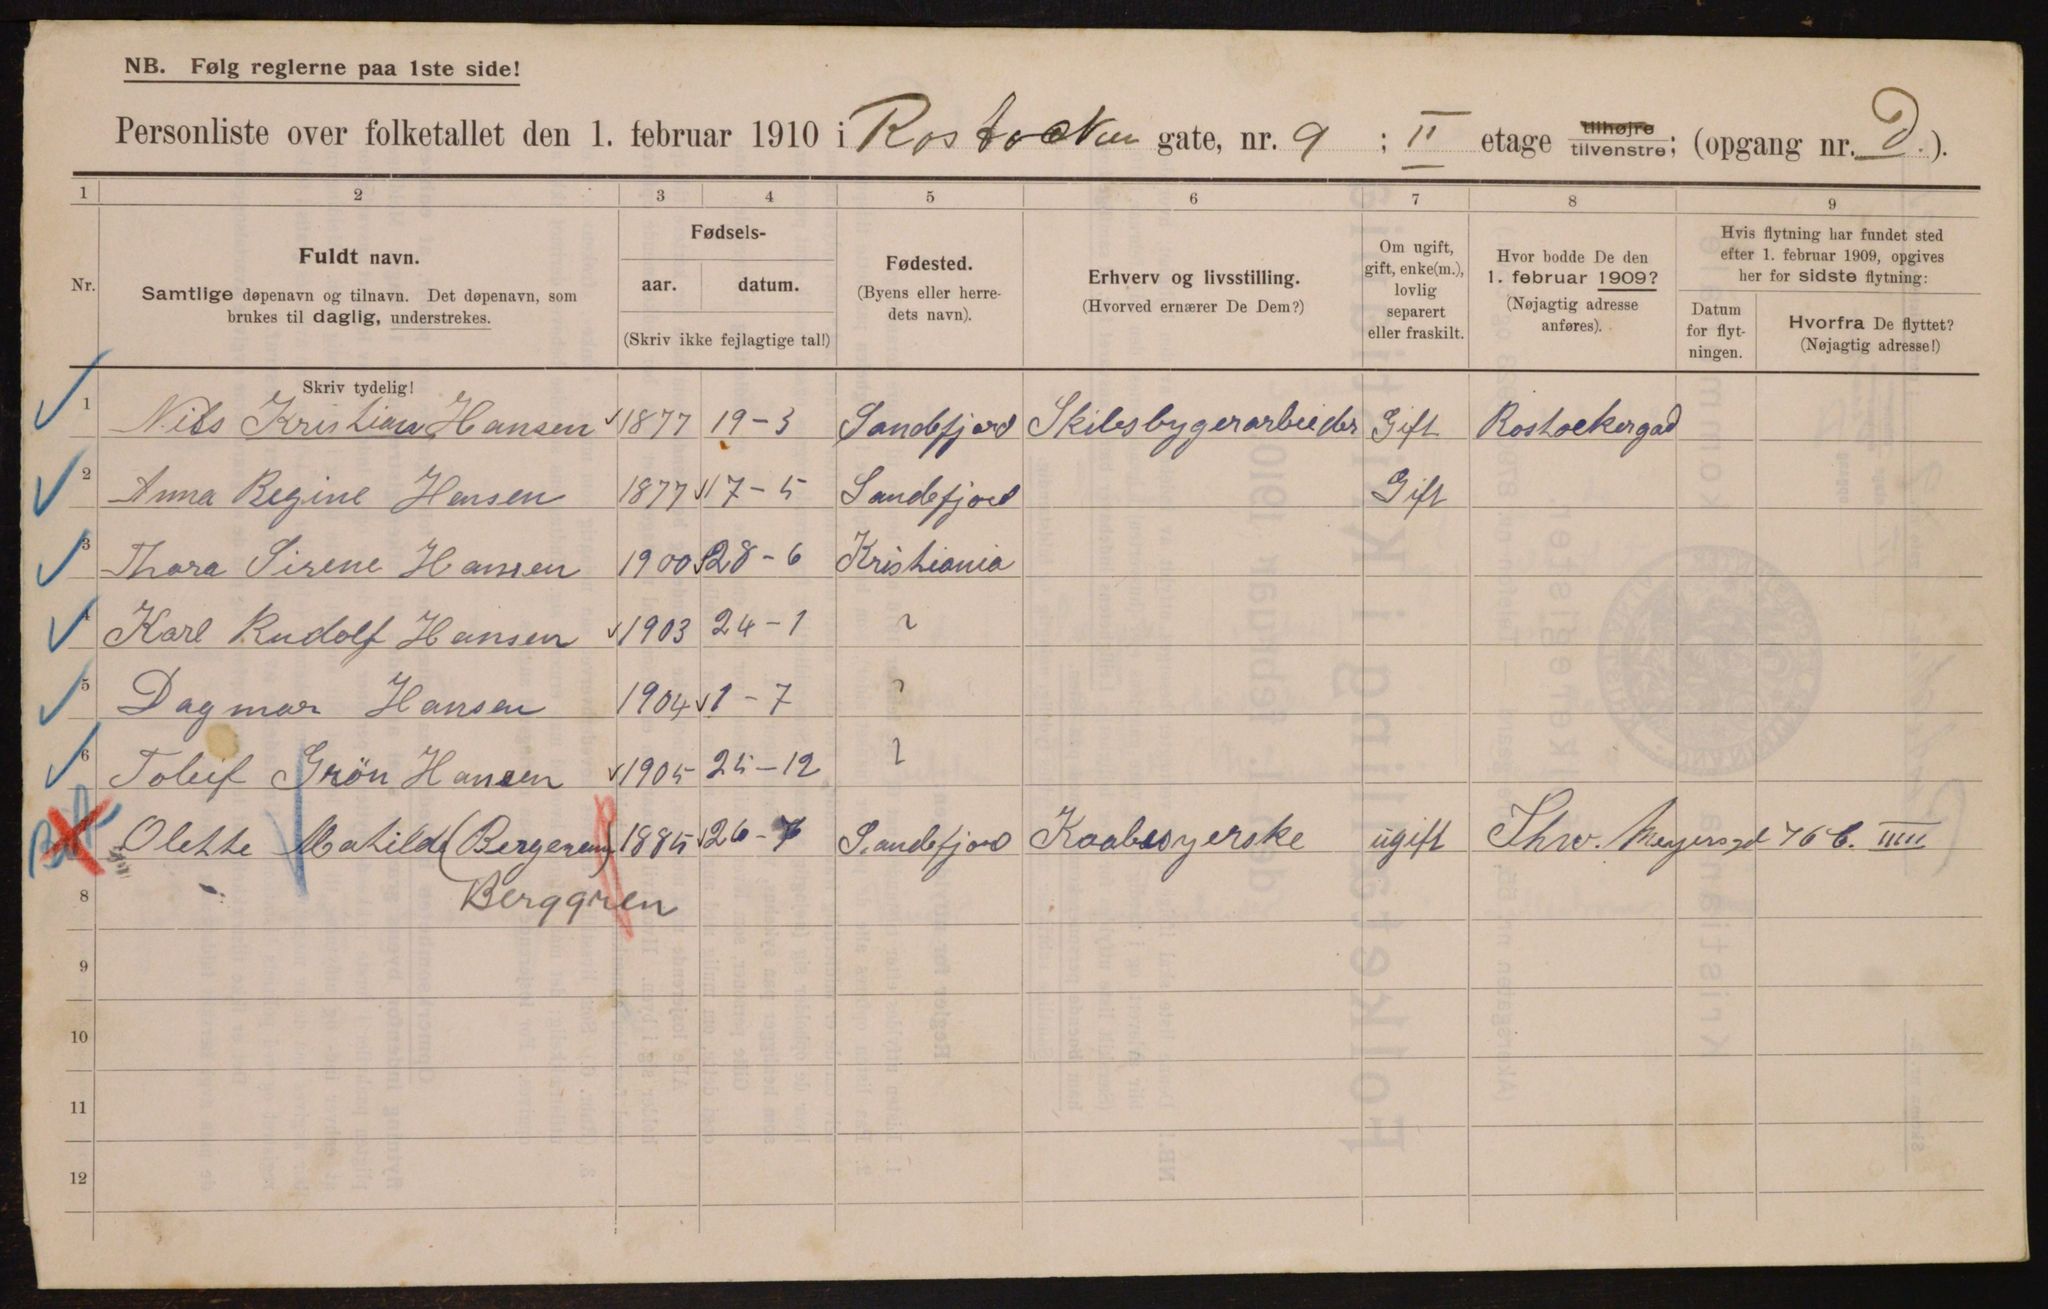 NB. Følg reglerne paa 1ste side!
Personliste over folketallet den 1. februar 1910 i Rostocker gate, nr. 9 ; II etage tilhøjre tilvenstre; (opgang nr. D.).
1 2 3 4 5 6 7 8 9
Nr.
Fuldt navn.
Samtlige døpenavn og tilnavn. Det døpenavn, som
brukes til daglig, understrekes.
Fødsels-
aar. datum.
(Skriv ikke fejlagtige tal!)
Fødested.
(Byens eller herre-
dets navn).
Erhverv og livsstilling.
(Hvorved ernærer De Dem?)
Om ugift,
gift, enke(m.),
lovlig
separert
eller fraskilt.
Hvor bodde De den
1. februar 1909?
(Nøjagtig adresse
anføres).
Hvis flytning har fundet sted
efter 1. februar 1909, opgives
her for sidste flytning:
Datum
for flyt-
ningen.
Hvorfra De flyttet?
(Nøjagtig adresse!)
Skriv tydelig!
1 Nils Kristian Hansen 1877 19-3 Sandefjord Skibsbygerarbeider Gift Rostockergad
2 Anna Regine Hansen 1877 17-5 Sandefjord Gift
3 Thora Sirene Hansen 1900 28-6 Kristiania
4 Karl Rudolf Hansen 1903 24-1 "
5 Dagmar Hansen 1904 1-7 "
6 Toleif Grön Hansen 1905 25-12 "
Olette Matilde (Bergeren) 1885 26-7 Sandefjord Kaabesyerske ugift Thw. Meyersgd 76 C. IIII
8 Berggren
9
10
11
12